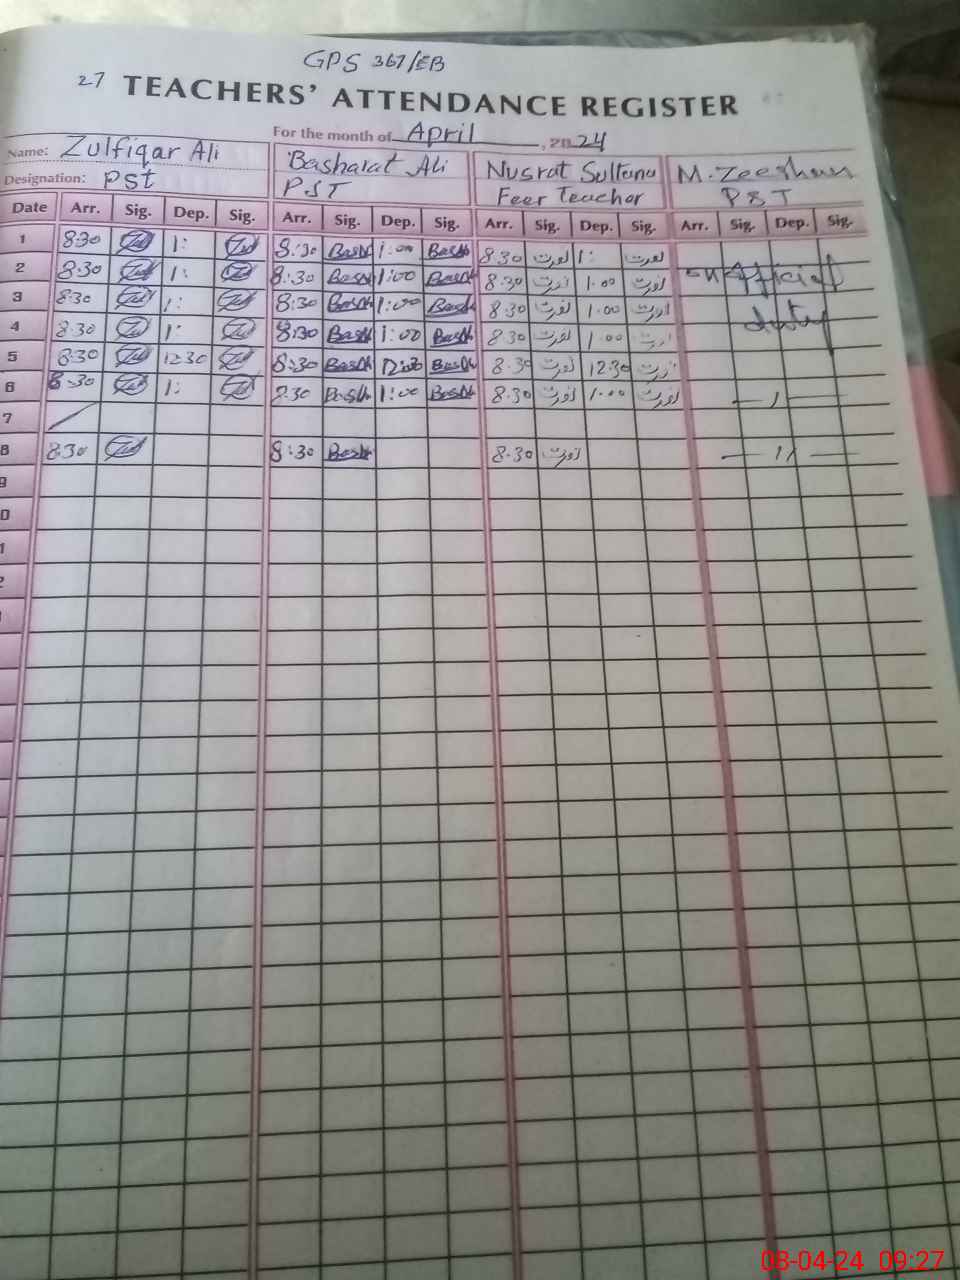 GPS 367/EB
27 TEACHERS' ATTENDANCE REGISTER
For the month of April, 2024
Name: Zulfiqar Ali Basharat Ali Nusrat Sultana M. Zeeshan
Designation: PST P.S.T Feer Teacher PST
Date Arr. Sig. Dep. Sig. Arr. Sig. Dep. Sig. Arr. Sig. Dep. Sig. Arr. Sig. Dep. Sig.
1 8:30 1: 8:30 Bash 1:00 Bash 8.30 نصرت 1: نصرت
2 8:30 1: 8:30 Bash 1:00 Bash 8.30 نصرت 1.00 نصرت on official
3 8:30 1: 8:30 Bash 1:00 Bash 8.30 نصرت 1.00 نصرت duty
4 8:30 1: 8:30 Bash 1:00 Bash 8.30 نصرت 1.00 نصرت
5 8:30 12:30 8:30 Bash 12:30 Bash 8.30 نصرت 12.30 نصرت
6 8:30 1: 8:30 Bash 1:00 Bash 8.30 نصرت 1.00 نصرت — 11 —
7
8 8:30 8:30 Bash 8.30 نصرت — 11 —
9
0
1
2
08-04-24 09:27